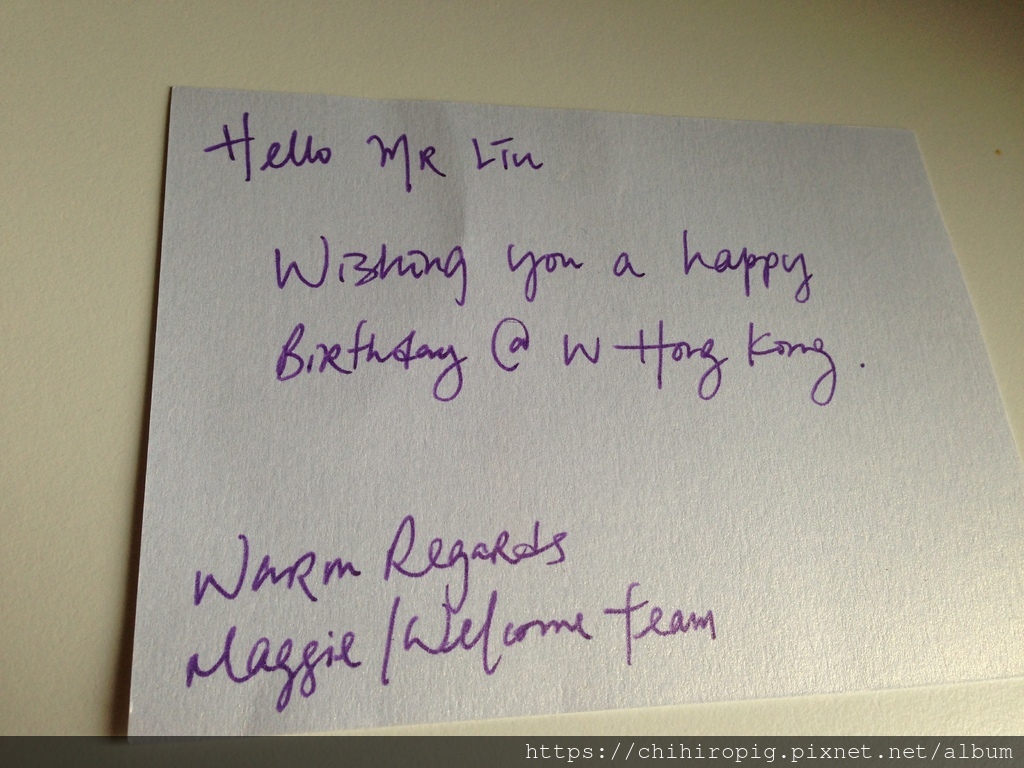 Hello MR Liu
Wishing you a happy
Birthday @ W Hong Kong.
Warm Regards
Maggie / Welcome Team
https://chihiropig.pixnet.net/album